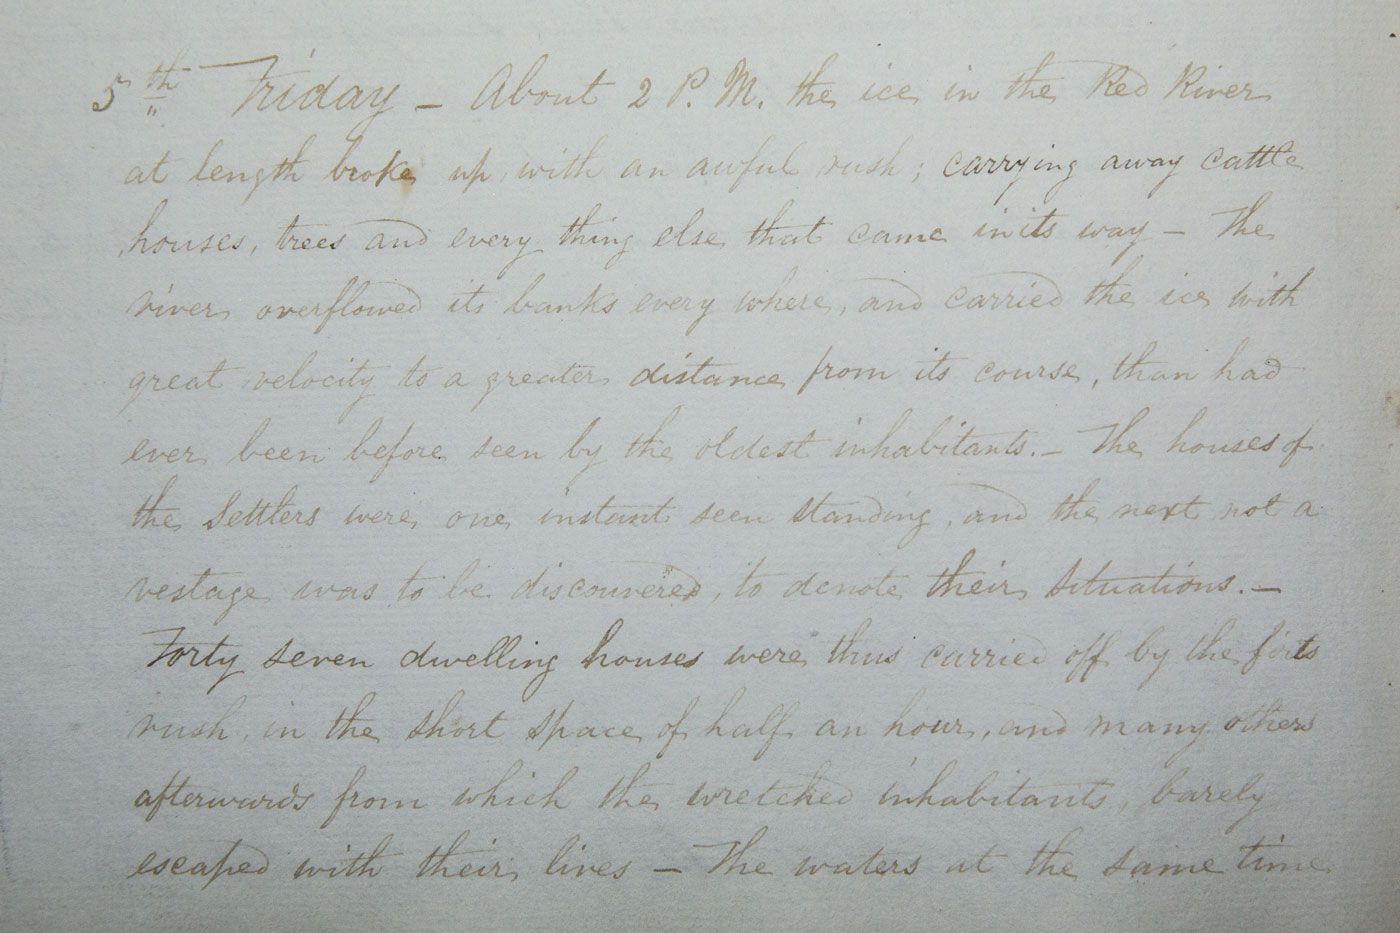 5th Friday – About 2 P.M. the ice in the Red River
at length broke up, with an awful rush; carrying away cattle
houses, trees and every thing else that came in its way – The
river overflowed its banks every where, and carried the ice with
great velocity to a greater distance from its course, than had
ever been before seen by the oldest inhabitants. – The houses of
the Settlers were one instant seen standing, and the next not a
vestage was to be discouvered, to denote their situations. –
Forty seven dwelling houses were thus carried off by the firts
rush, in the short space of half an hour, and many others
afterwards from which the wretched inhabitants, barely
escaped with their lives – The waters at the same time